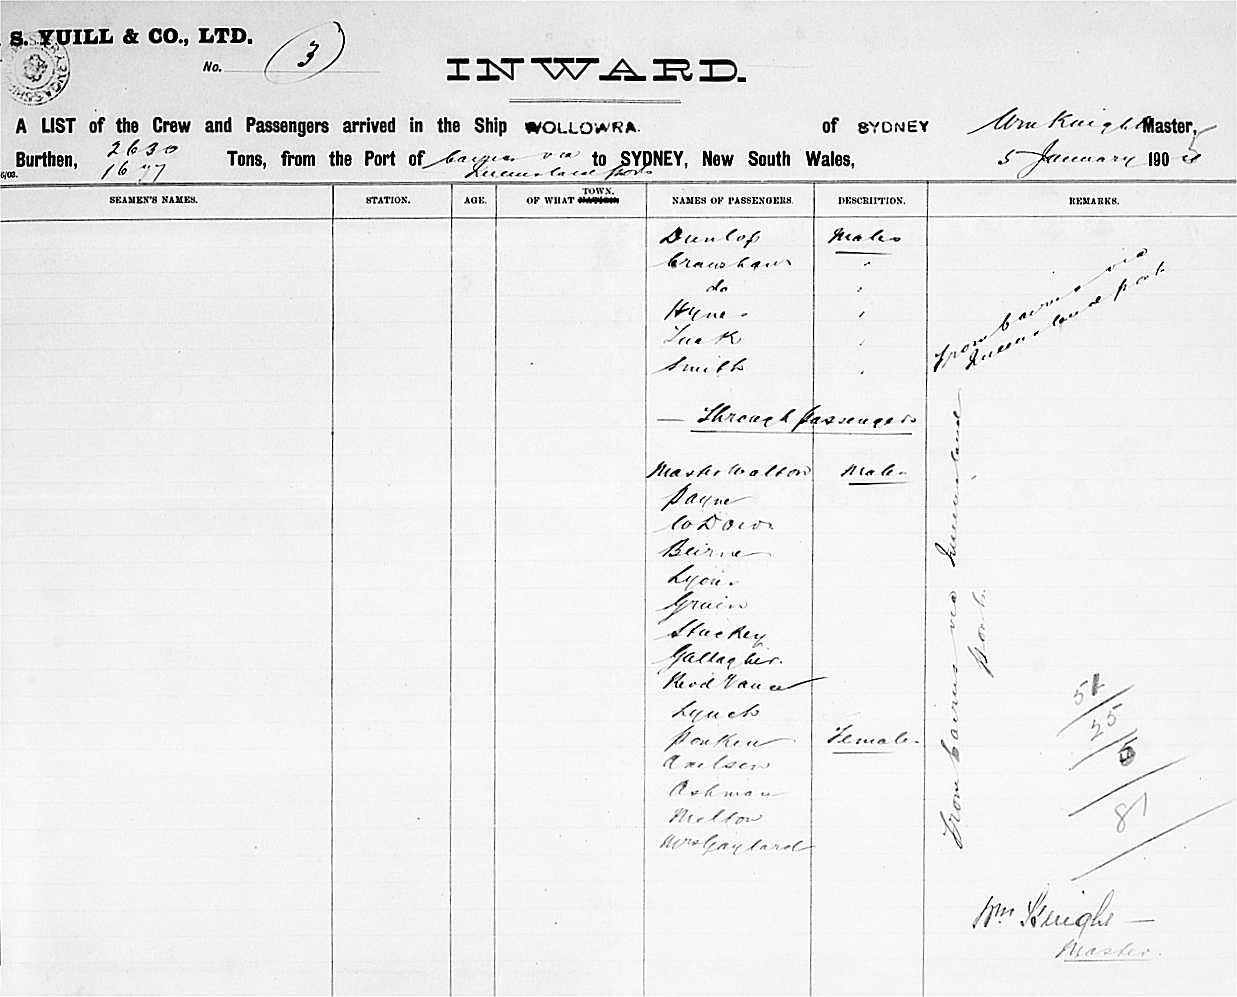 S. YUILL & CO., LTD.
No. 3
INWARD.
A LIST of the Crew and Passengers arrived in the Ship WOLLOWRA. of SYDNEY Wm Knight Master,
Burthen, 2630
1677 Tons, from the Port of Cairns via
Queensland Ports to SYDNEY, New South Wales, 5 January 1905
6/03.
SEAMEN'S NAMES. STATION. AGE. OF WHAT TOWN. NAMES OF PASSENGERS. DESCRIPTION. REMARKS.
Dunlop Males
Cranshaw "
do "
Hynes "
Tuck "
Smith "
From Cairns via
Queensland Ports
— Through Passengers
Master Walton Males
Payne
Beirne
Lyons
Stuckey
Gallagher.
Reid Vance
Lynch
Females
Ashman
Melton
Mrs Gaylard
From Cairns via Queensland
Ports
51
25
5
81
Wm Knight —
Master.